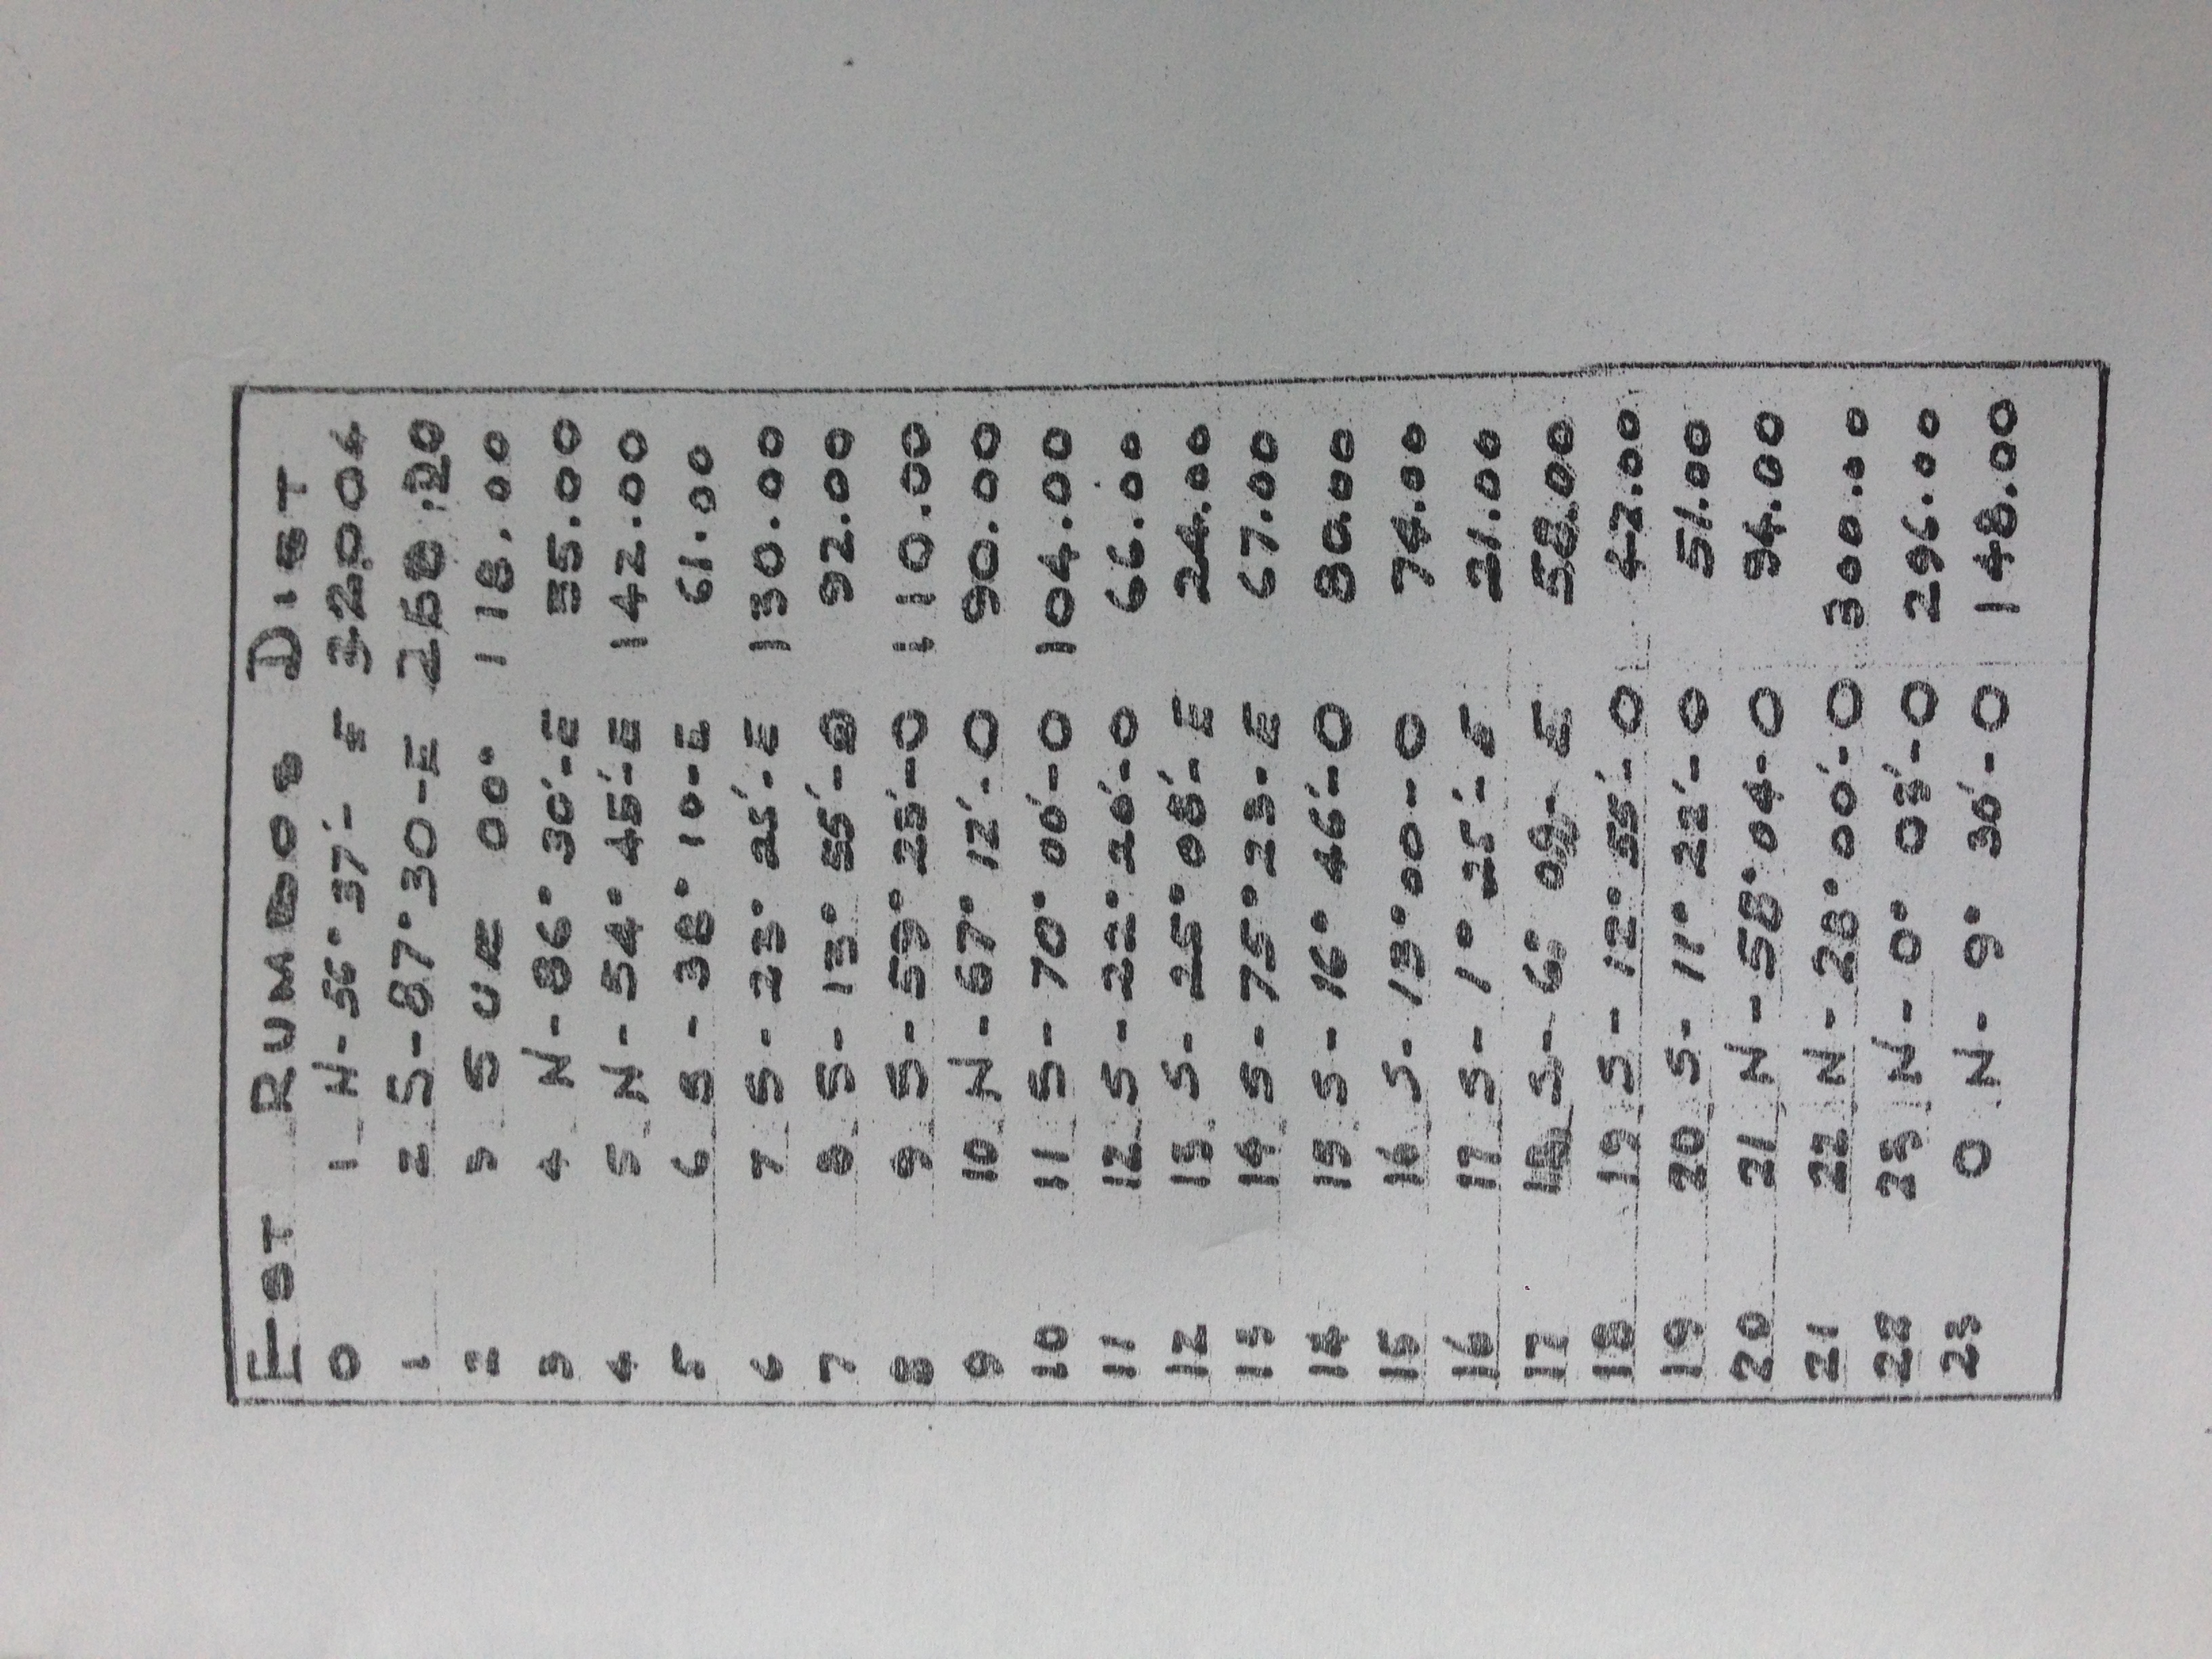 EST RUMBOS DIST
0 1 N-56°37'- E 322.04
1 2 S-87°30-E 250.20
2 3 SUR 00° 118.00
3 4 N-86°30'-E 35.00
4 5 N-54°45'-E 142.00
5 6 S-38°10-E 61.00
6 7 S-23°25'-E 130.00
7 8 S-13°55'-O 92.00
8 9 S-59°25'-O 110.00
9 10 N-67°12'-O 90.00
10 11 S-70°00'-O 104.00
11 12 S-22°20'-O 66.00
12 13 S-25°08'-E 24.00
13 14 S-75°23-E 67.00
14 15 S-16°46'-O 80.00
15 16 S-13°00-O 74.00
16 17 S-1°25'-E 21.00
17 18 S-6° E 58.00
18 19 S-12°55'-O 47.00
19 20 S-11°22'-O 51.00
20 21 N-58°04-O 94.00
21 22 N-28°00'-O 300.00
22 23 N-0°08'-O 296.00
23 0 N-9°30'-O 148.00